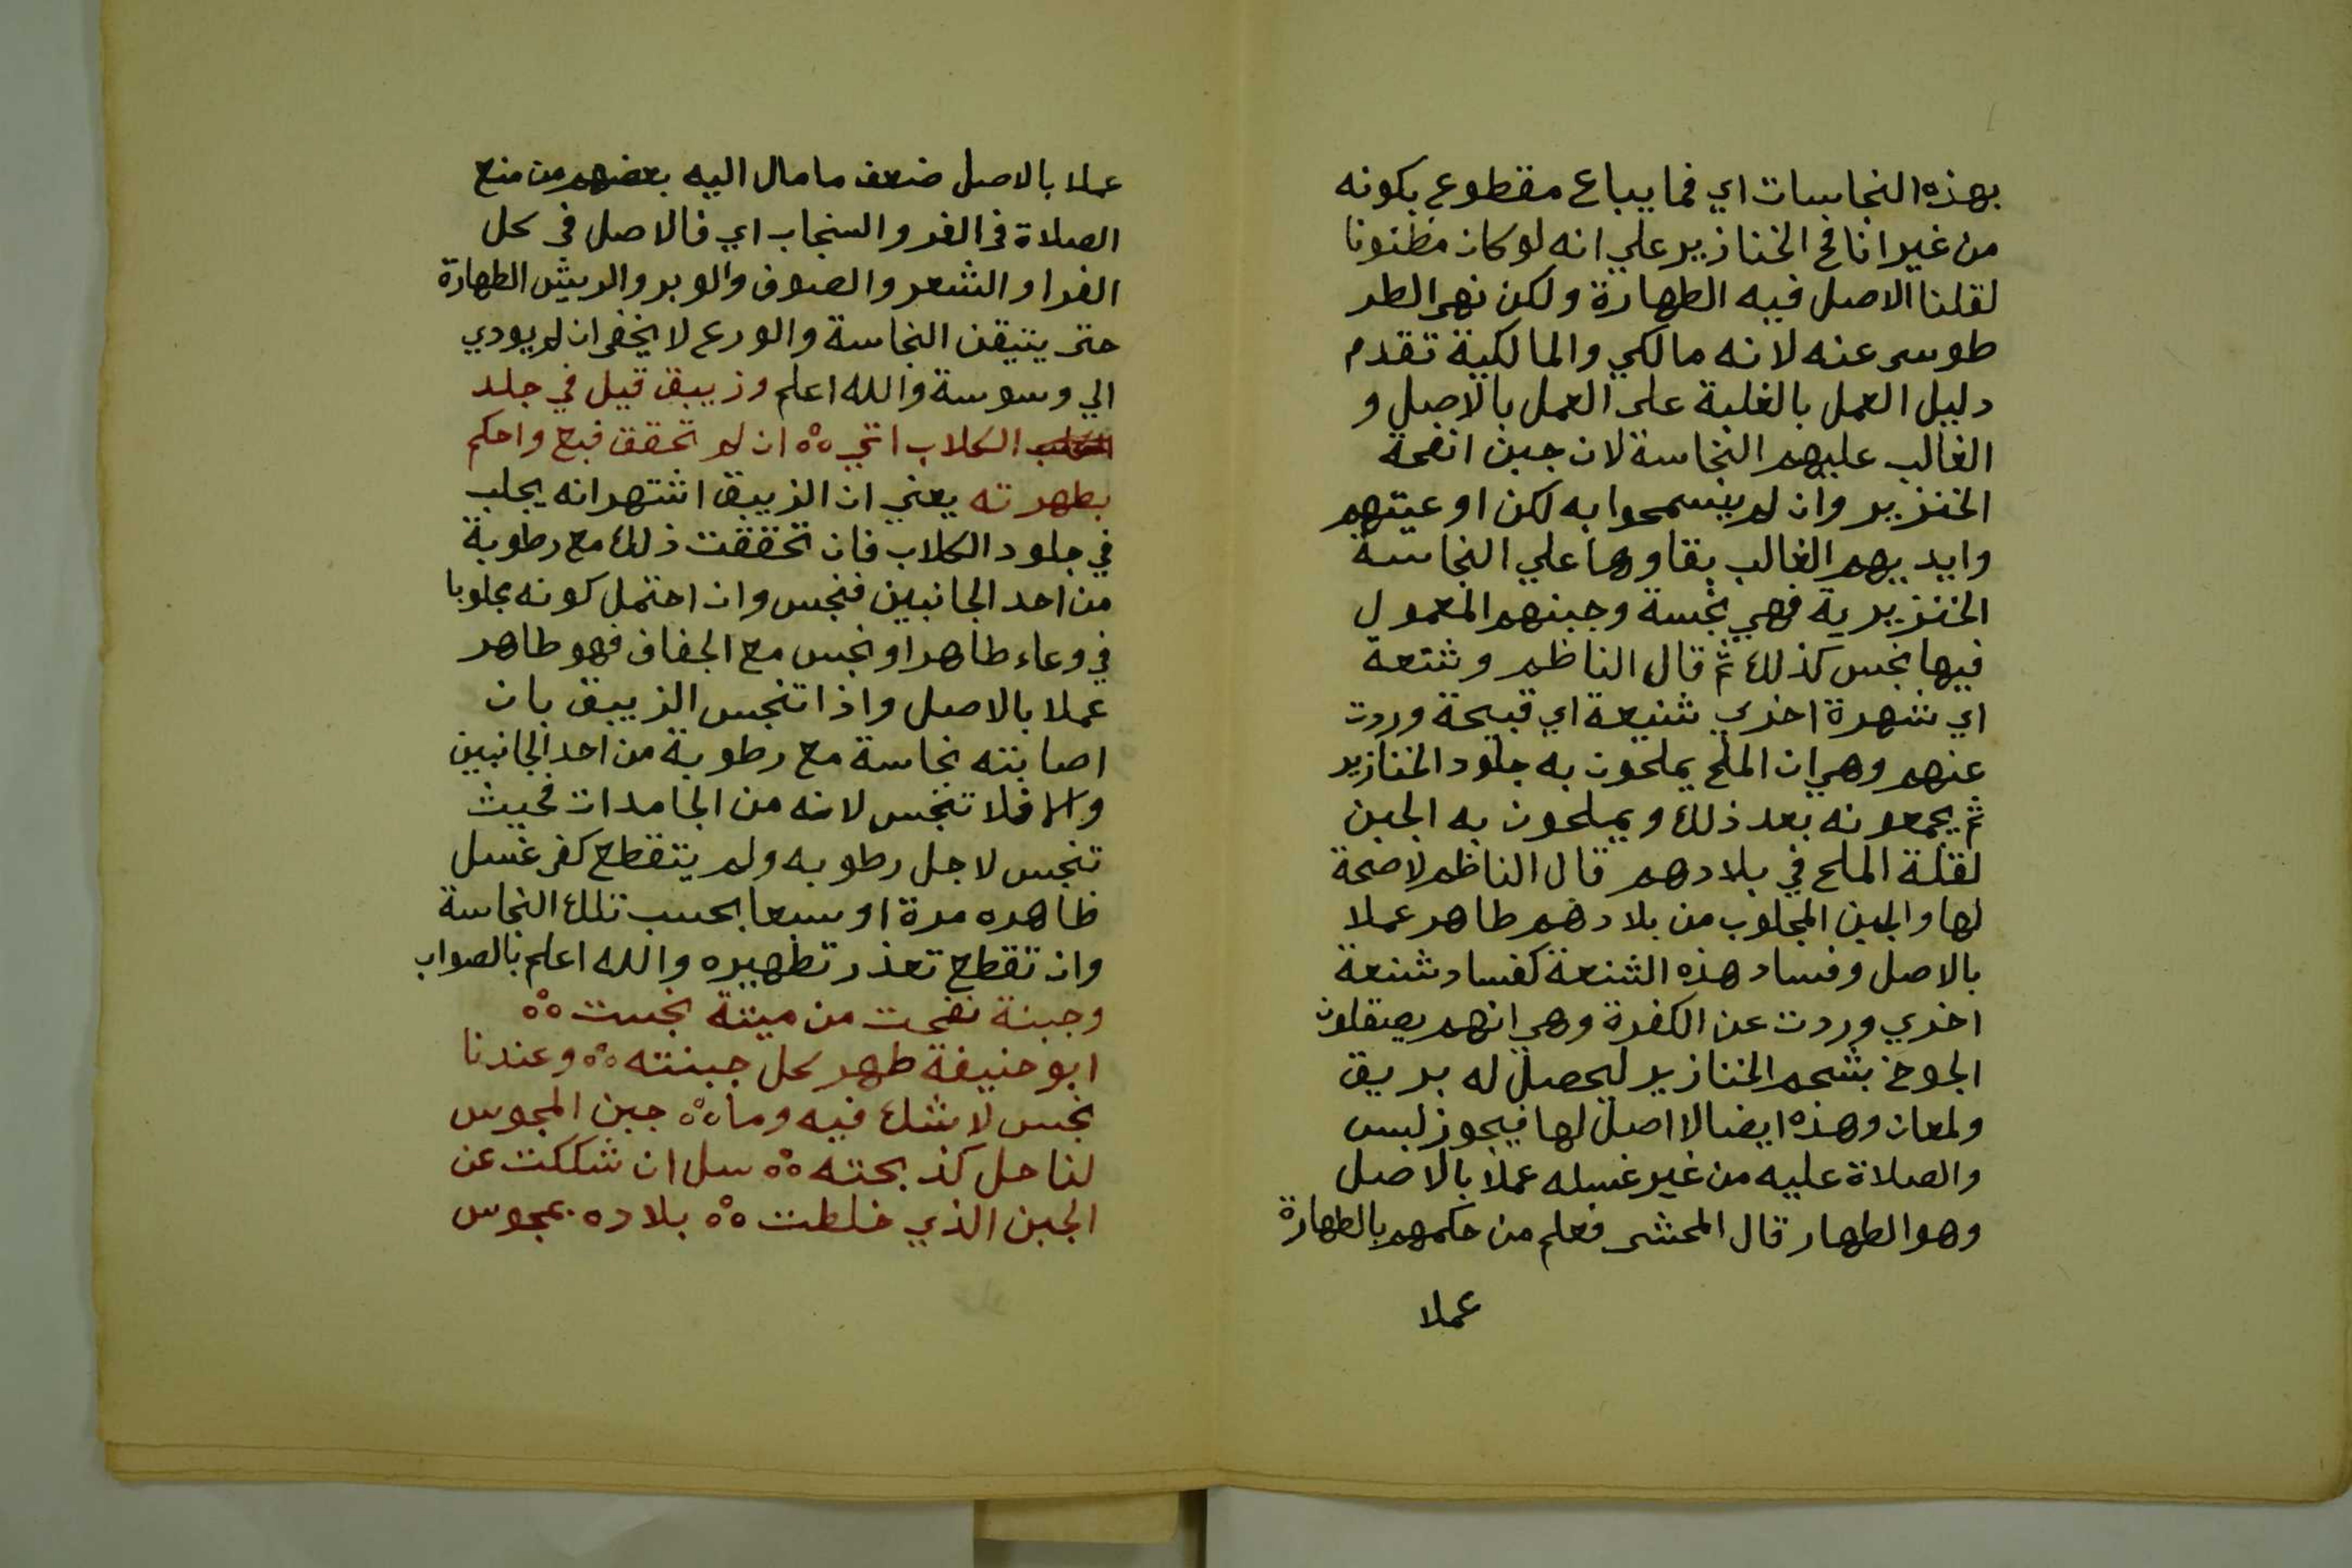 بهذه النجاسات اي فما يباع مقطوع بكونه
من غير انافح الخنازير علي انه لو كان مظنونا
لقلنا الاصل فيه الطهارة ولكن نهى الطر
طوسى عنه لانه مالكي والمالكية تقدم
دليل العمل بالغلبة على العمل بالاصل و
الغالب عليهم النجاسة لان جبن انفحة
الخنزير وان لم يسمحوا به لكن اوعيتهم
وايديهم الغالب بقاوها علي النجاسة
الخنزيرية فهي نجسة وجبنهم المعمول
فيها نجس كذلك ثم قال الناظم وشنعة
اي شهرة اخري شنيعة اي قبيحة وردت
عنهم وهى ان الملح يملحون به جلود الخنازير
ثم يجمعونه بعد ذلك ويملحون به الجبن
لقلة الملح في بلادهم قال الناظم لا صحة
لها والجبن المجلوب من بلادهم طاهر عملا
بالاصل وفساد هذه الشنعة كفساد شنعة
اخري وردت عن الكفرة وهي انهم يصقلون
الجوخ بشحم الخنازير ليحصل له بريق
ولمعان وهذه ايضا لا اصل لها فيجوز لبس
والصلاة عليه من غير غسله عملا بالاصل
وهو الطهار قال المحشى فعلم من حكمهم بالطهارة
عملا
عملا بالاصل ضعف ما مال اليه بعضهم من منع
الصلاة فى الفر والسنجاب اي فالاصل فى كل
الفرا والشعر والصوف والوبر والريش الطهارة
حتى يتيقن النجاسة والورع لا يخفى ان لم يودي
الي وسوسة والله اعلم وزيبق قيل في جلد
الكلاب اتي ان لم تحقق فبع واحكم
بطهرته يعني ان الزيبق اشتهر انه يجلب
في جلود الكلاب فان تحققت ذلك مع رطوبة
من احد الجانبين فنجس وان احتمل كونه مجلوبا
في وعاء طاهر او نجس مع الجفاف فهو طاهر
عملا بالاصل واذا تنجس الزيبق بان
اصابته نجاسة مع رطوبة من احد الجانبين
والا فلا تنجس لانه من الجامدات فحيث
تنجس لاجل رطوبه ولم يتقطع كفى غسل
ظاهره مرة او سبعا بحسب تلك النجاسة
وان تقطع تعذر تطهيره والله اعلم بالصواب
وجبنة نفحت من ميتة نجست
ابو حنيفة طهر كل جبنته وعندنا
نجس لا شك فيه وما جبن المجوس
لنا حل كذبحته سل ان شككت عن
الجبن الذي خلطت بلاده بمجوس